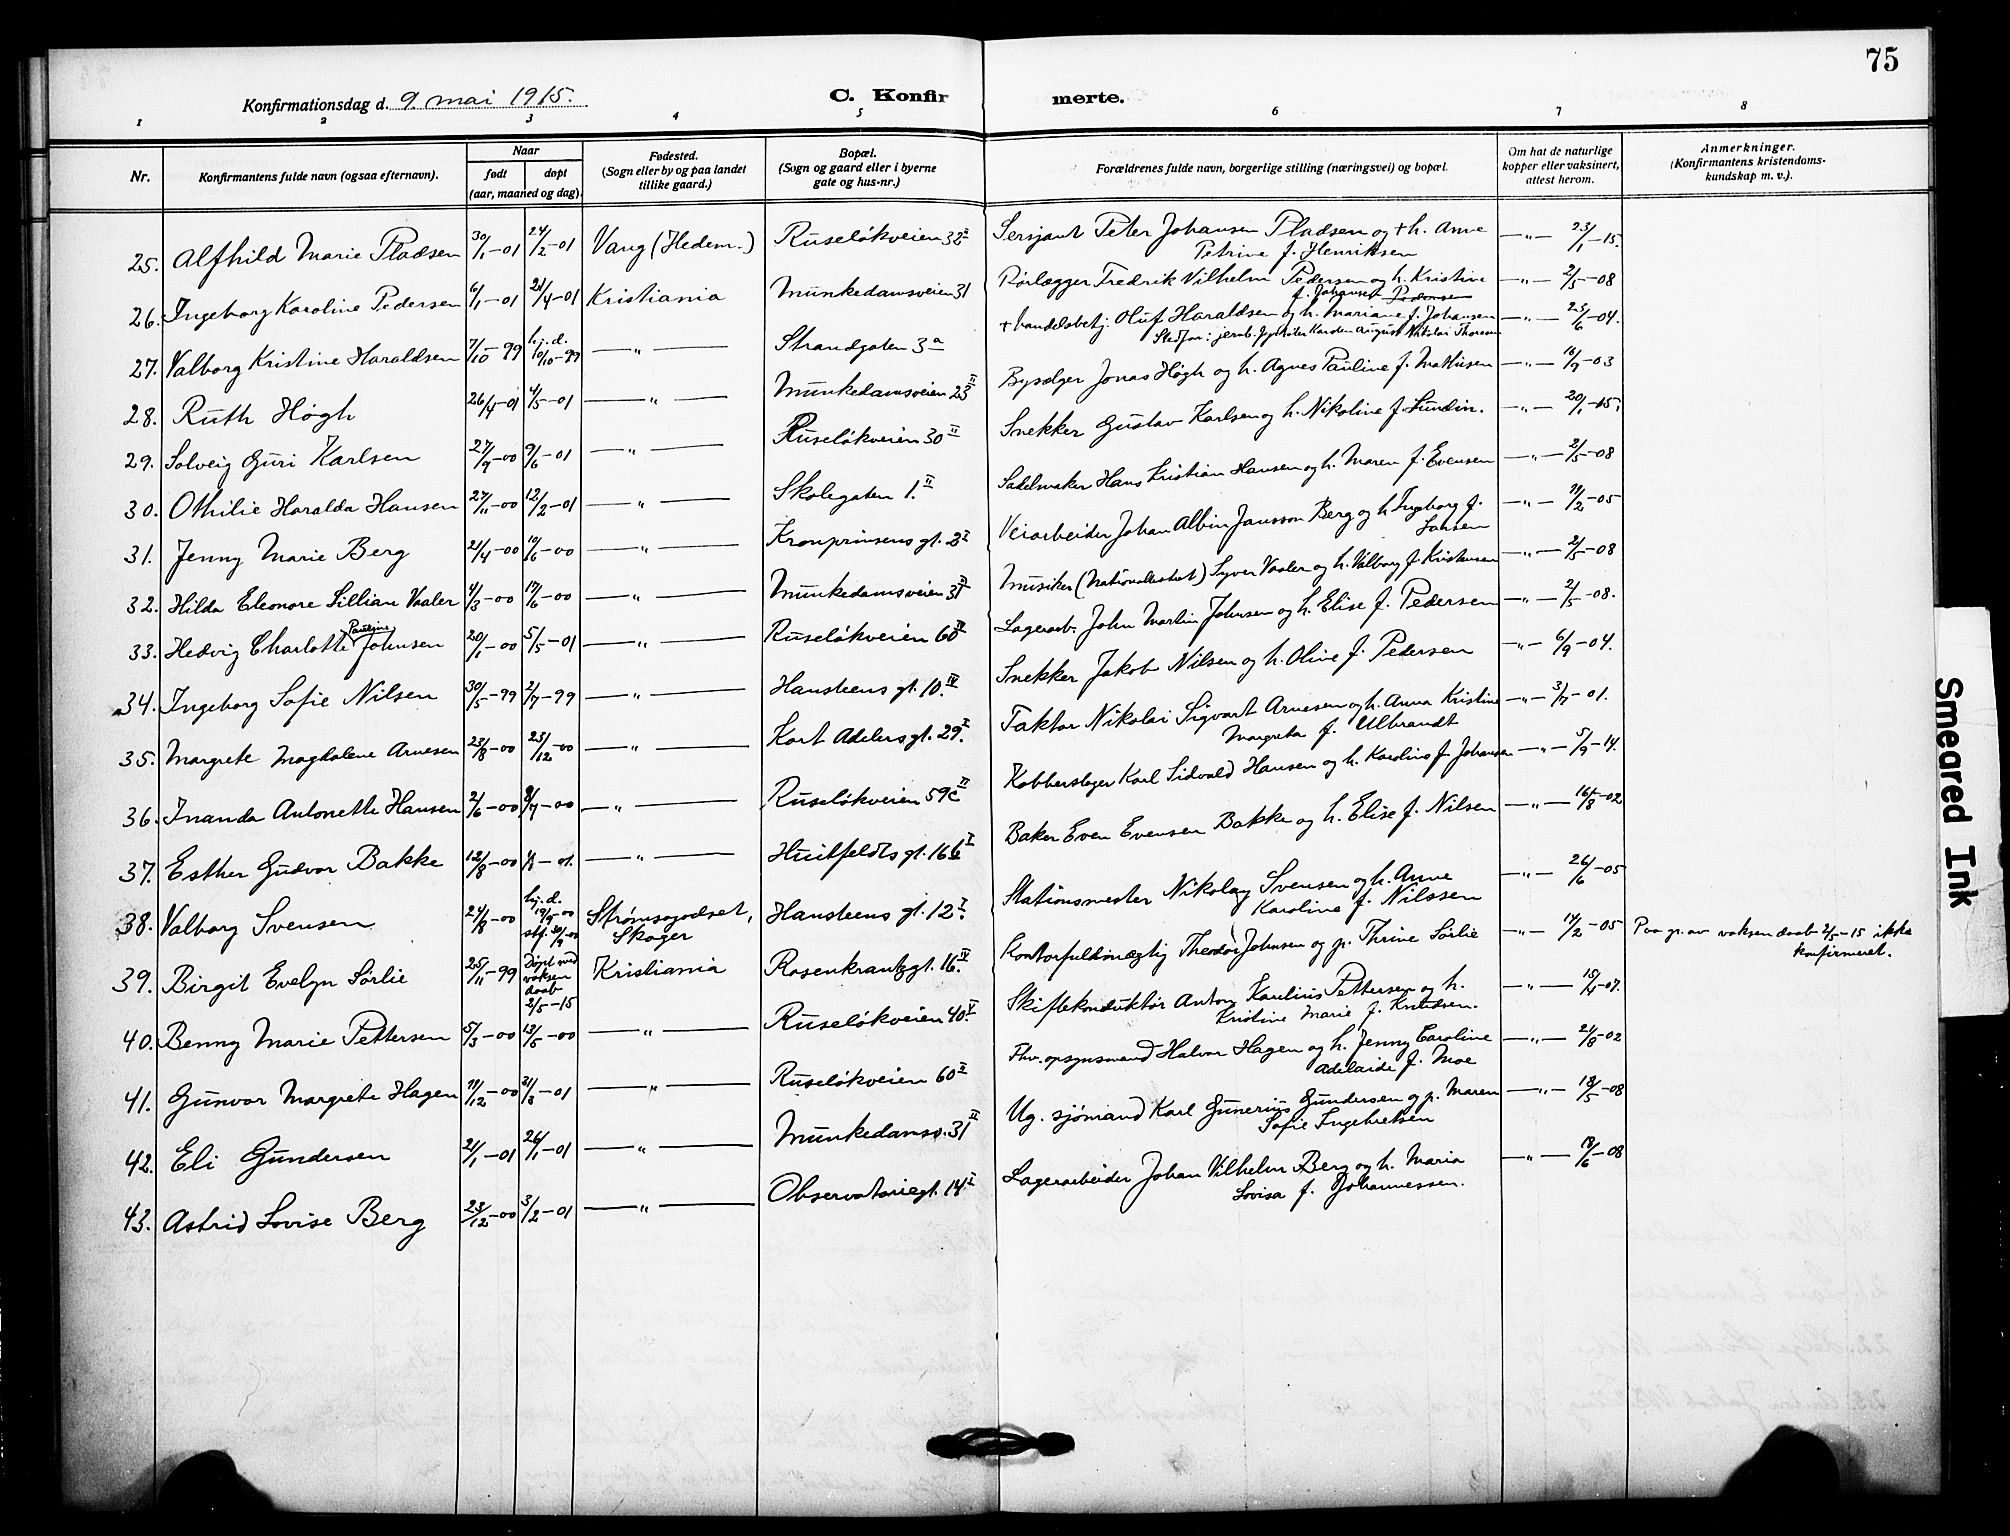 75
Konfirmationsdag d. 9 mai 1915.
C. Konfirmerte.
1 2 3 4 5 6 7 8
Nr.
Konfirmantens fulde navn (ogsaa efternavn).
Naar
født døpt
(aar, maaned og dag).
Fødested.
(Sogn eller by og paa landet
tillike gaard.)
Bopæl.
(Sogn og gaard eller i byerne
gate og hus-nr.)
Forældrenes fulde navn, borgerlige stilling (næringsvei) og bopæl.
Om hat de naturlige
kopper eller vaksinert,
attest herom.
Anmerkninger.
(Konfirmantens kristendoms-
kundskap m. v.).
25. Alfhild Marie Pladsen 30/1-01 24/2-01 Vang (Hedem.) Ruseløkveien 32 II Sersjant Peter Johansen Pladsen og + h. Anne -"- 23/1-15.
Petrine f. Henriksen
26. Ingeborg Karoline Pedersen 6/1-01 21/4-01 Kristiania Munkedamsveien 31 Rørlægger Fredrik Vilhelm Pedersen og h. Kristine -"- 2/5-08
f. Johansen
27. Valborg Kristine Haraldsen 7/10-99 hj. d. 10/10-99 -"- Strandgaten 3a + handelsbetj. Oluf Haraldsen og h. Mariane f. Johansen -"- 23/6-04.
Stedfar: jernb. August Nikolai
28. Ruth Høgh 26/4-01 4/5-01 -"- Munkedamsveien 23 III Bysælger Jonas Høgh og h. Agnes Pauline f. Mathisen -"- 16/9-03
29. Solveig Guri Karlsen 27/9-00 9/6-01 -"- Ruseløkveien 30 II Snekker Gustav Karlsen og h. Nikoline f. Lundin. -"- 20/1-15.
30. Othilie Haralda Hansen 27/11-00 12/2-01 -"- Skolegaten 1. II Sadelmaker Hans Kristian Hansen og h. Maren f. Evensen -"- 2/5-08
31. Jenny Marie Berg 21/4-00 10/6-00 -"- Kronprinsens gt. 2 I Veiarbeider Johan Albin Jansson Berg og h. Ingeborg f. -"- 11/2-05
Larsen
32. Hilda Eleonore Lillian Vaaler 4/3-00 17/6-00 -"- Munkedamsveien 31 II Musiker (Nationaltheatret) Syver Vaaler og h. Valborg f. Kristensen -"- 2/5-08
33. Hedvig Charlotte Pauline Johnsen 20/1-00 5/5-01 -"- Ruseløkveien 60 IV Lagerarb. John Martin Johnsen og h. Elise f. Pedersen -"- 2/5-08.
34. Ingeborg Sofie Nilsen 30/5-99 2/7-99 -"- Hansteens gt. 10. IV Snekker Jakob Nilsen og h. Oline f. Pedersen -"- 6/9-04.
35. Margrete Magdalene Arnesen 23/8-00 23/12-00 -"- Kort Adelers gt. 29. I Faktor Nikolai Sigvart Arnesen og h. Anna Kristine -"- 3/7-01.
Margreta f. Ulbrandt
36. Inanda Antonette Hansen 2/6-00 8/7-00 -"- Ruseløkveien 59c II Kobberslager Karl Sidvald Hansen og h. Karoline f. Johansen -"- 5/9-14.
37. Esther Gudvor Bakke 12/8-00 1/1-01. -"- Huitfeldts gt. 16b I Baker Even Evensen Bakke og h. Elise f. Nilsen -"- 16/8-02
38. Valborg Svensen 24/8-00 hj. d. 19/9-00 stf. 30/9-00 Strømsgodset, Skoger Hansteens gt. 12 I. Stationsmester Nikolay Svensen og h. Anne -"- 26/6-05
Karoline f. Nilssen
39. Birgit Evelyn Sørlie 25/11-99 Døpt ved voksen daab 2/5-15 Kristiania Rosenkrantzgt. 16. IV Kontorfuldmægtig Theodor Johnsen og p. Thrine Sørlie -"- 14/2-05 Paa gr. av voksendaab 2/5-15 ikke
konfirmeret.
40. Benny Marie Pettersen 5/3-00 13/5-00 -"- Ruseløkveien 40. V Skiftekonduktør Anton Karelius Pettersen og h. -"- 15/4-07.
Kristine Marie f. Knudsen.
41. Gunvor Margrete Hagen 11/12-00 31/3-01 -"- Ruseløkveien 60 II Fhv. opsynsmand Halvor Hagen og h. Jenny Caroline -"- 21/8-02
Adelaide f. Moe
42. Eli Gundersen 21/1-01 26/1-01 -"- Munkedamsv. 31 II Ug. sjømand Karl Gunerius Gundersen og p. Maren -"- 18/5-08
Sofie Ingebretsen
43. Astrid Lovise Berg 23/12-00 3/2-01 -"- Observatoriegt. 14 I Lagerarbeider Johan Vilhelm Berg og h. Maria -"- 18/6-08
Lovisa f. Johannessen.
Smeared Ink